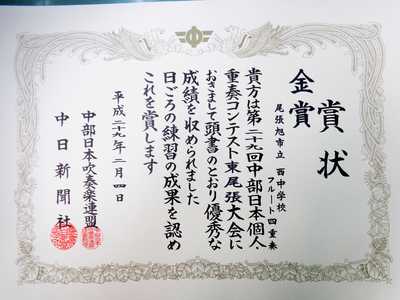 賞状
金賞
尾張旭市立 西中学校
フルート四重奏
貴方は第二十九回中部日本個人・
重奏コンテスト東尾張大会に
おきまして頭書のとおり優秀な
成績を収められました
日ごろの練習の成果を認め
これを賞します
平成二十九年二月四日
中部日本吹奏楽連盟
中日新聞社